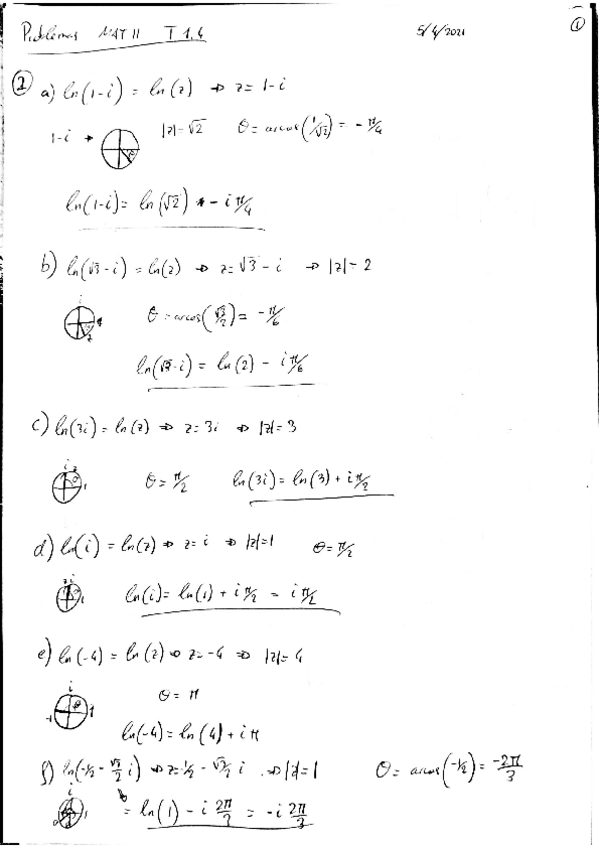 Problemas MAT II T 1.4 5/4/2021 1
1 a) ln(1-i) = ln(z) ⇒ z = 1-i
1-i → |z|=√2 θ = arcos(1/√2) = -π/4
ln(1-i) = ln(√2) - i π/4
b) ln(√3-i) = ln(z) ⇒ z = √3 - i ⇒ |z| = 2
i
θ = arcos(√3/2) = -π/6
ln(√3-i) = ln(2) - i π/6
c) ln(3i) = ln(z) ⇒ z = 3i ⇒ |z| = 3
i z
1 θ = π/2 ln(3i) = ln(3) + i π/2
d) ln(i) = ln(z) ⇒ z = i ⇒ |z| = 1 θ = π/2
z i
1 ln(i) = ln(1) + i π/2 = i π/2
e) ln(-4) = ln(z) ⇒ z = -4 ⇒ |z| = 4
i
-1 θ 1 θ = π
ln(-4) = ln(4) + i π
f) ln(-1/2 - √3/2 i) ⇒ z = -1/2 - √3/2 i ⇒ |z| = 1 θ = arcos(-1/2) = -2π/3
i
1 = ln(1) - i 2π/3 = -i 2π/3